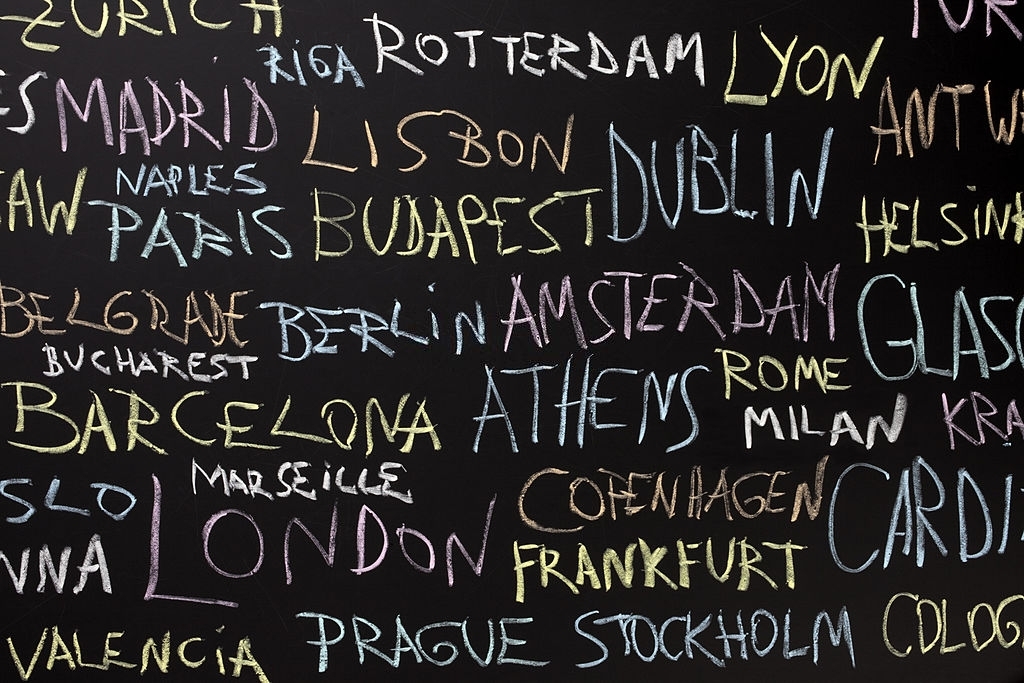 ZURICH
RIGA ROTTERDAM LYON TUR
ES MADRID LISBON DUBLIN ANTW
NAPLES
AW PARIS BUDAPEST HELSINK
BELGRADE BERLIN AMSTERDAM GLASG
BUCHAREST ROME
BARCELONA ATHENS MILAN KRA
MARSEILLE
SLO LONDON COPENHAGEN CARDI
NNA FRANKFURT
VALENCIA PRAGUE STOCKHOLM COLOG